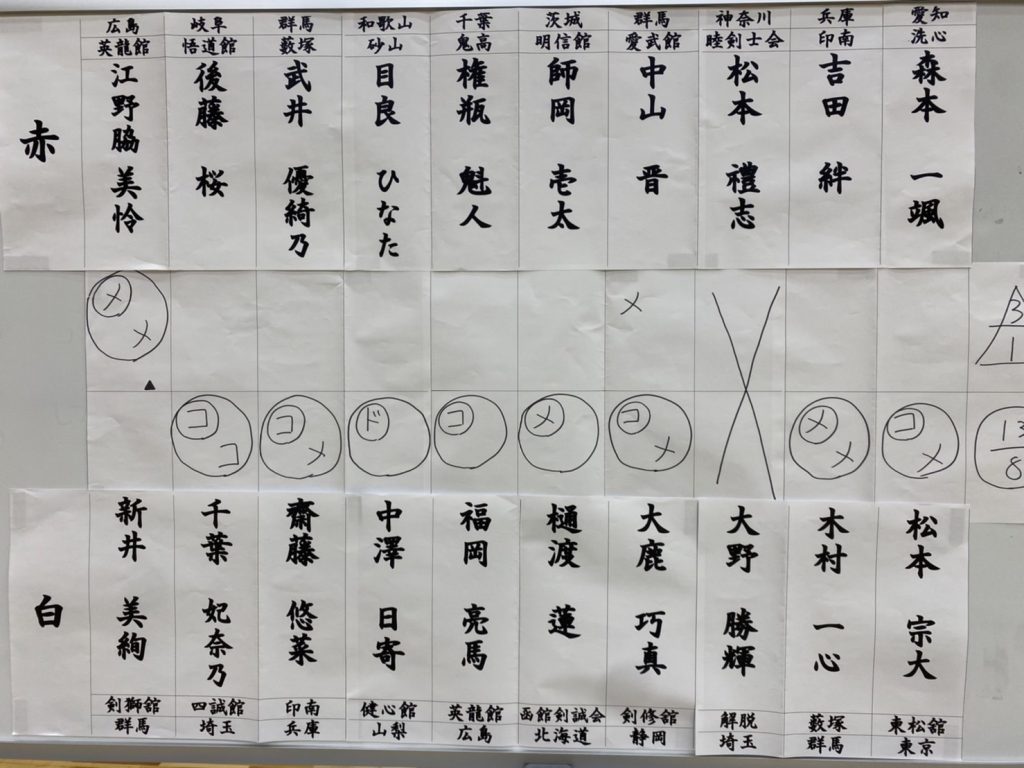 広島 岐阜 群馬 和歌山 千葉 茨城 群馬 神奈川 兵庫 愛知
英龍館 悟道館 藪塚 砂山 鬼高 明信館 愛武館 睦剣士会 印南 洗心
赤
江野脇 美怜
後藤 桜
武井 優綺乃
目良 ひなた
権瓶 魁人
師岡 壱太
中山 晋
松本 禮志
吉田 絆
森本 一颯
メ メ メ 3
▲ 1
コ コ コ メ ド コ メ コ メ メ メ コ メ 13
8
白
新井 美絢
千葉 妃奈乃
齋藤 悠菜
中澤 日寄
福岡 亮馬
樋渡 蓮
大鹿 巧真
大野 勝輝
木村 一心
松本 宗大
剣獅舘 四誠館 印南 健心館 英龍館 函館剣誠会 剣修舘 解脱 藪塚 東松舘
群馬 埼玉 兵庫 山梨 広島 北海道 静岡 埼玉 群馬 東京